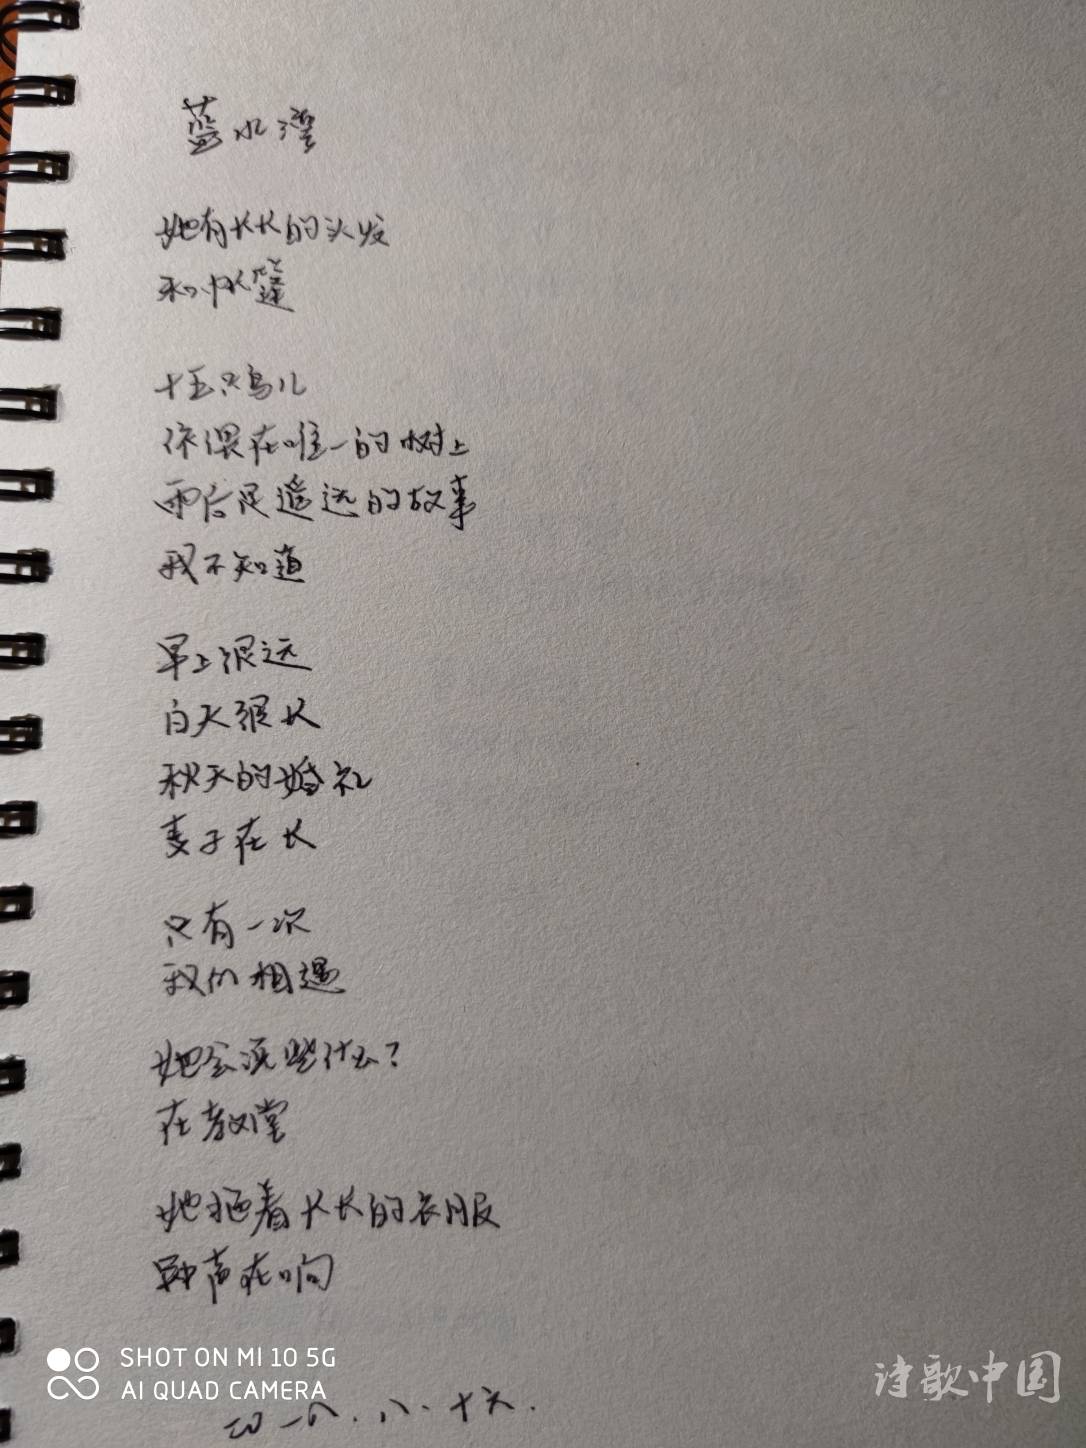 蓝水湾
她有长长的头发
和帆篷
十五只鸟儿
依偎在唯一的树上
雨后是遥远的故事
我不知道
早上很远
白天很长
秋天的婚礼
麦子在长
只有一次
我们相遇
她会说些什么？
在教堂
她拖着长长的衣服
钟声在响
SHOT ON MI 10 5G
AI QUAD CAMERA
诗歌中国
八.十六.